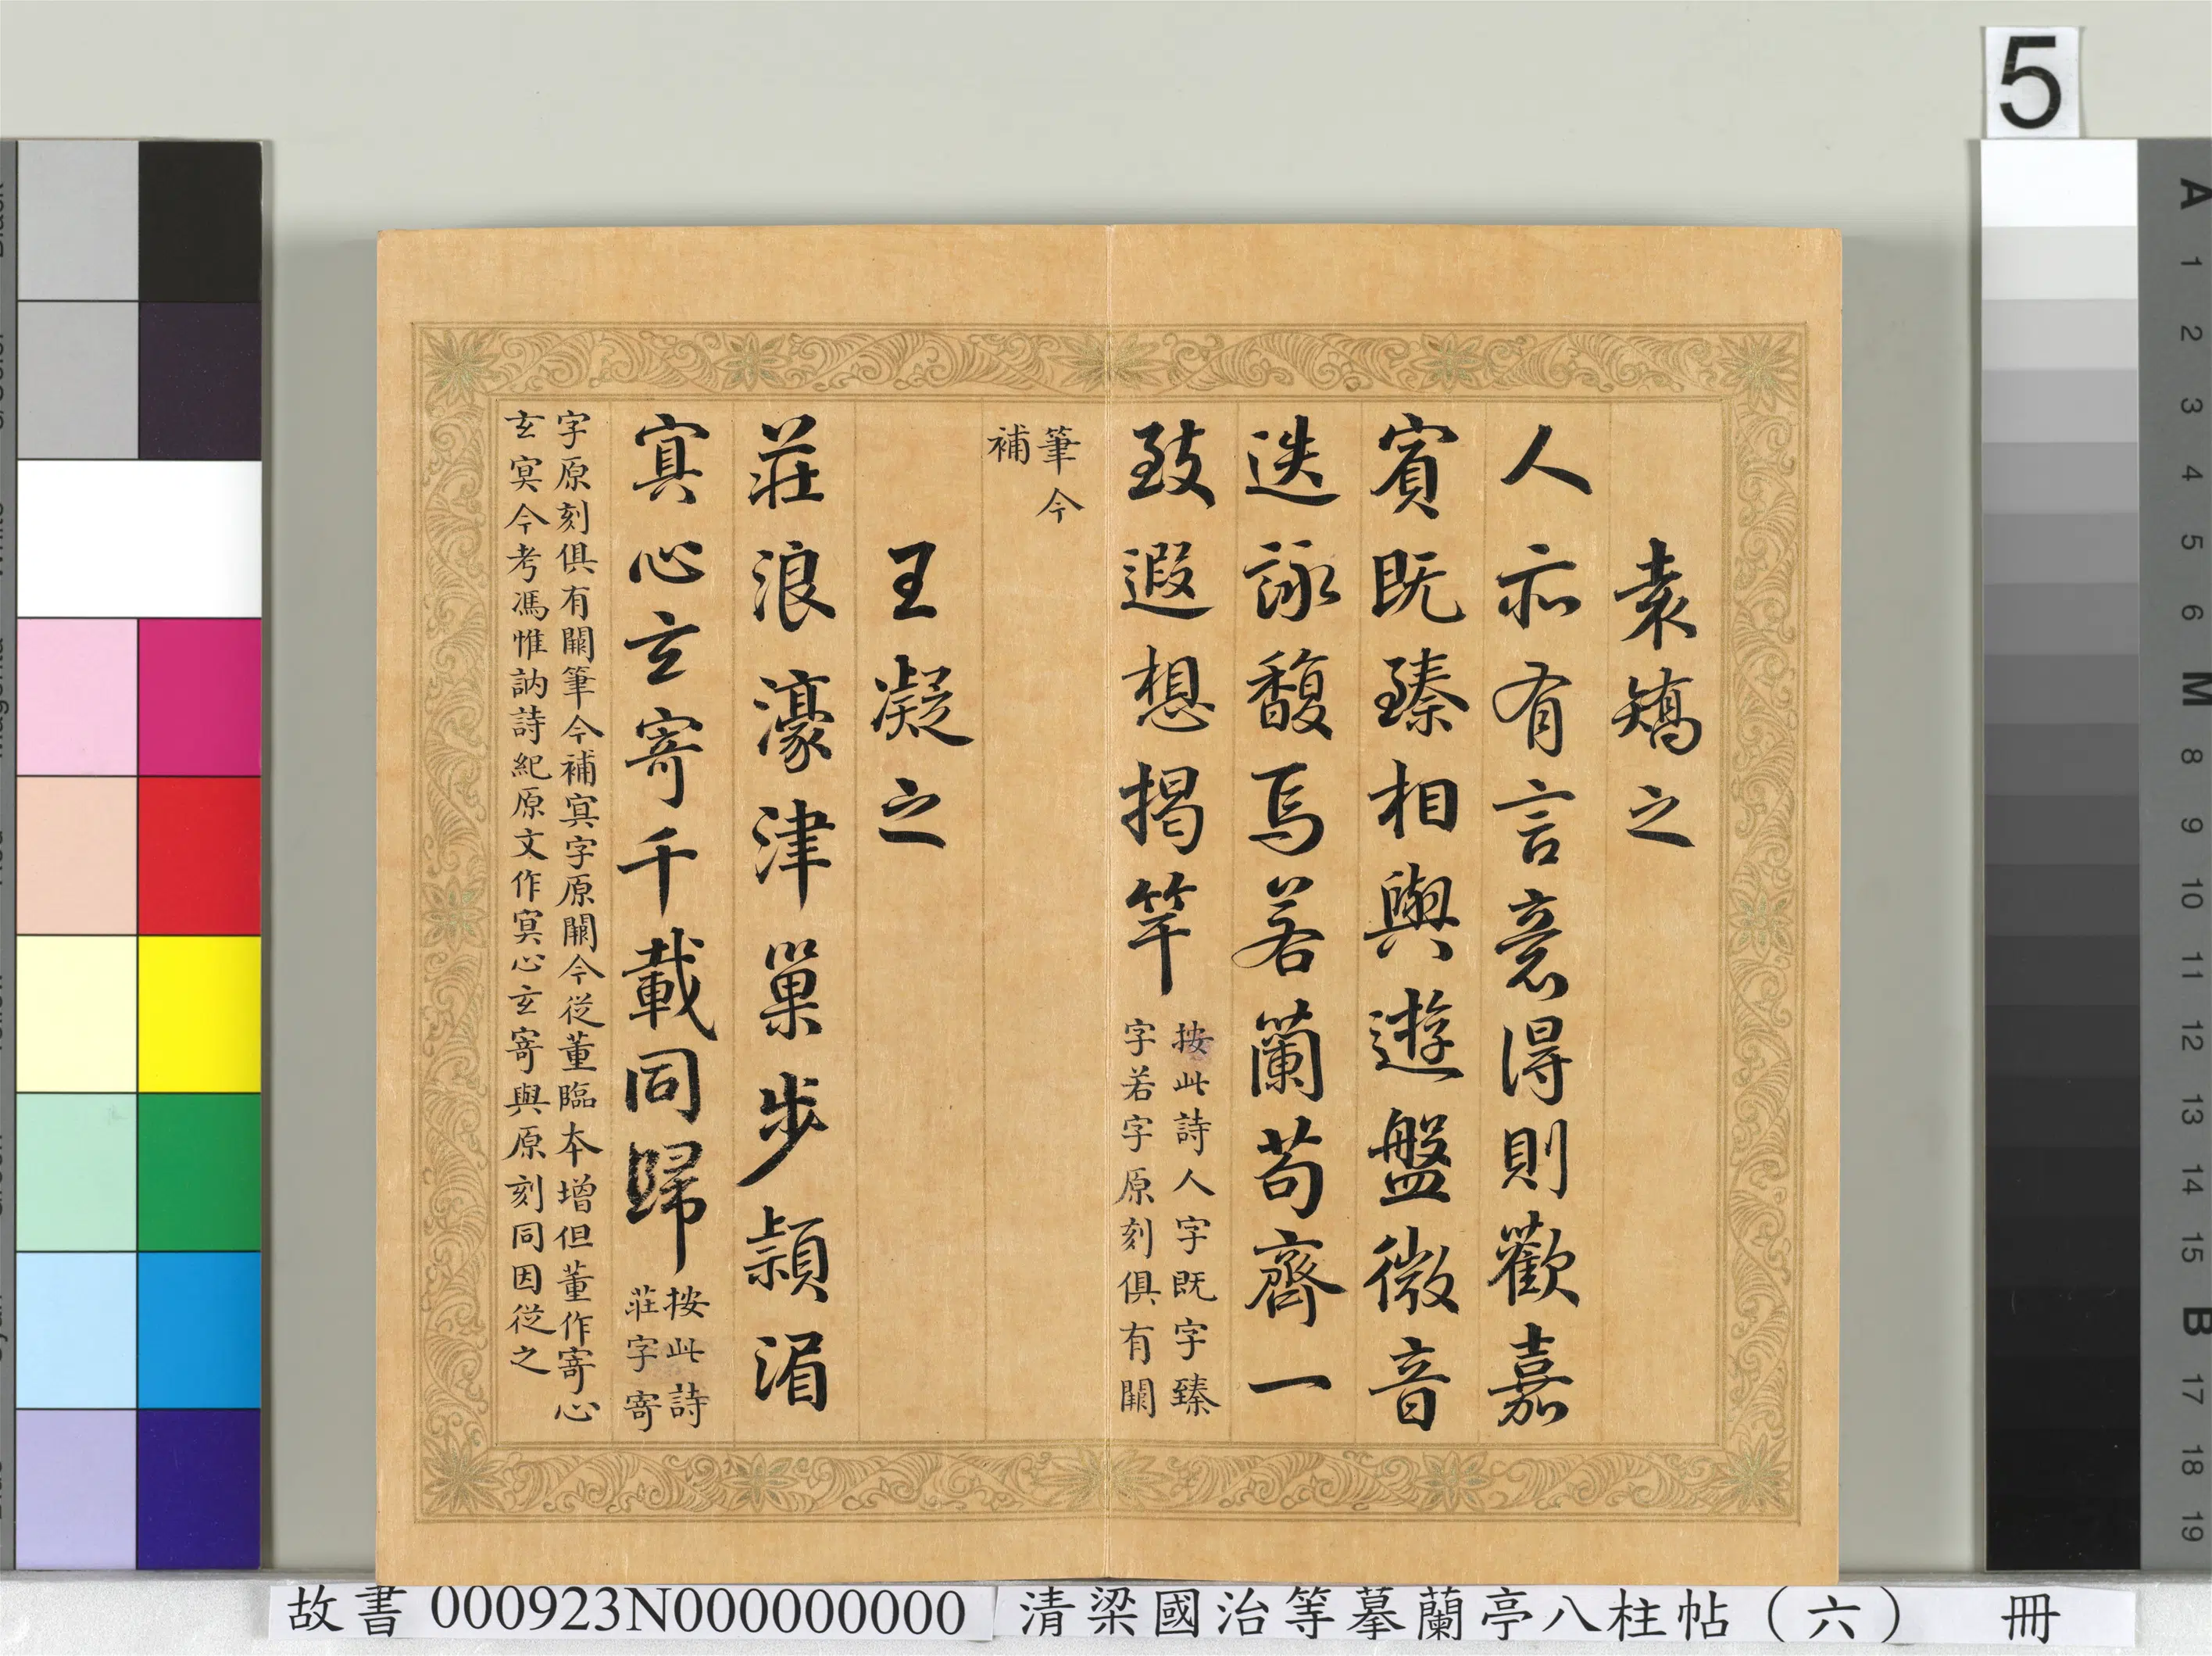 5
袁矯之
人亦有言意得則歡嘉
賓既臻相與遊盤微音
迭詠馥焉若蘭苟齊一
致遐想揭竿
按此詩人字既字臻
字若字原刻俱有闕
筆今
補
王凝之
莊浪濠津巢步潁湄
寘心玄寄千載同歸
按此詩
莊字寄
字原刻俱有闕筆今補寘字原闕今從董臨本增但董作寄心
玄冥今考馮惟訥詩紀原文作寘心玄寄與原刻同因從之
故書 000923N000000000 清梁國治等摹蘭亭八柱帖（六） 冊
A
1
2
3
4
5
6
M
8
9
10
11
12
13
14
15
B
17
18
19